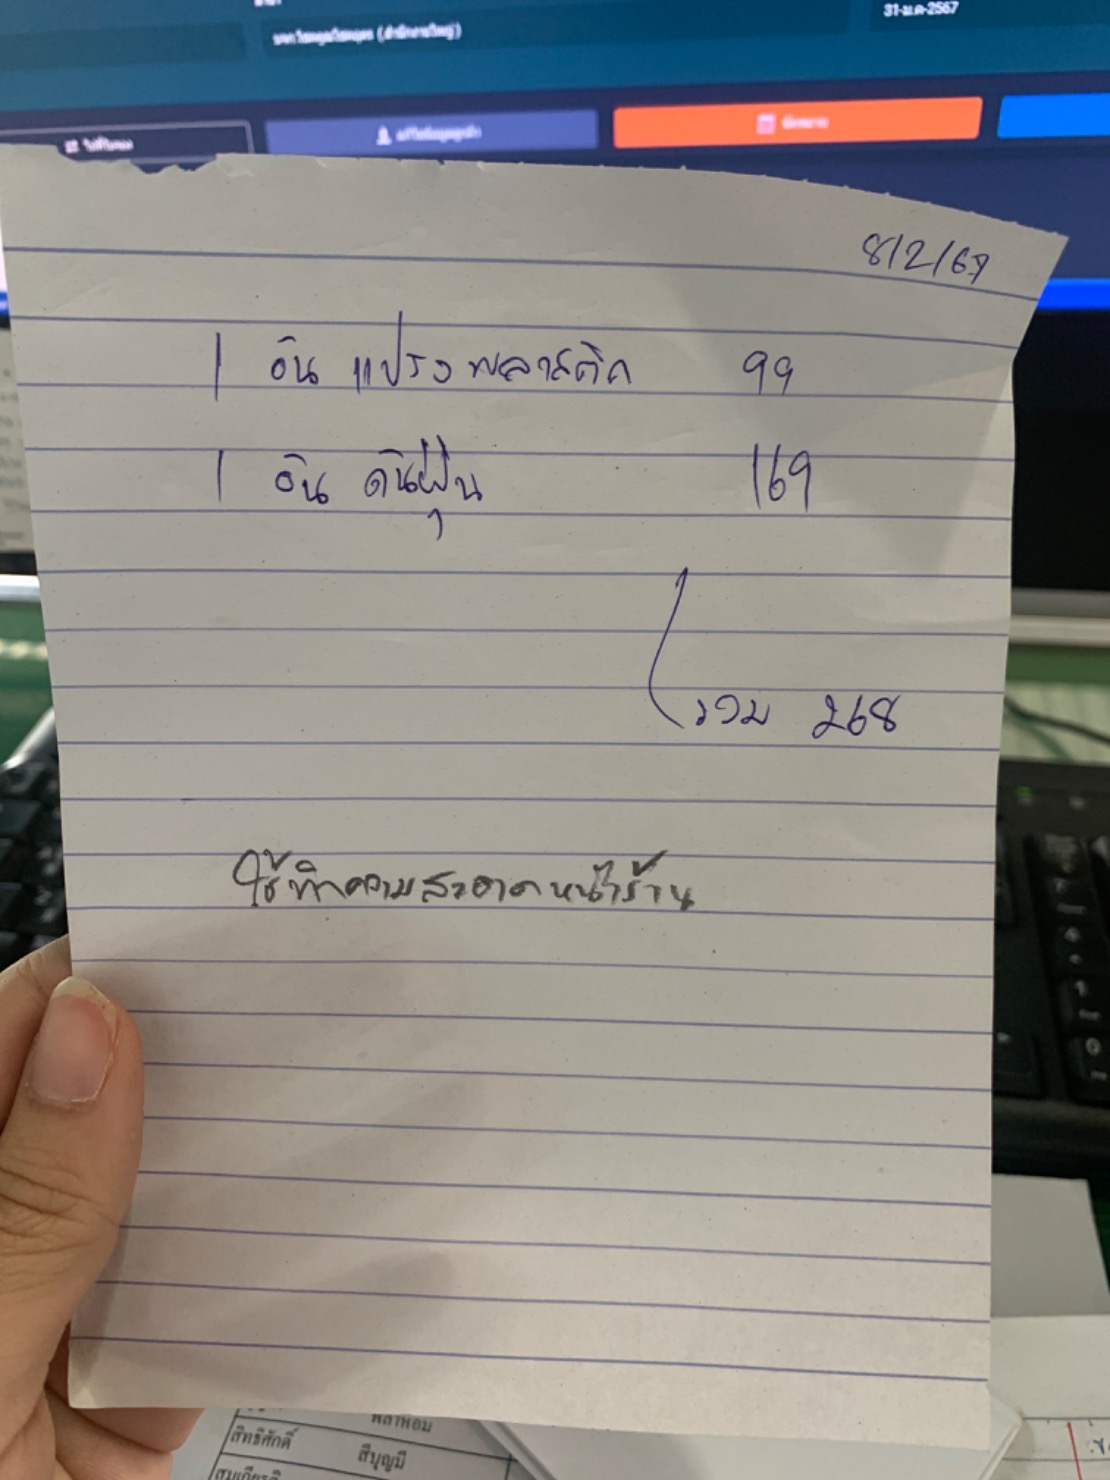 31-ม.ค-2567
8/2/67
1 อัน แปรงพลาสติก 99
1 อัน ดันฝุ่น 169
รวม 268
ใช้ทำความสะอาดหน้าร้าน
สิทธิศักดิ์ สีบุญมี